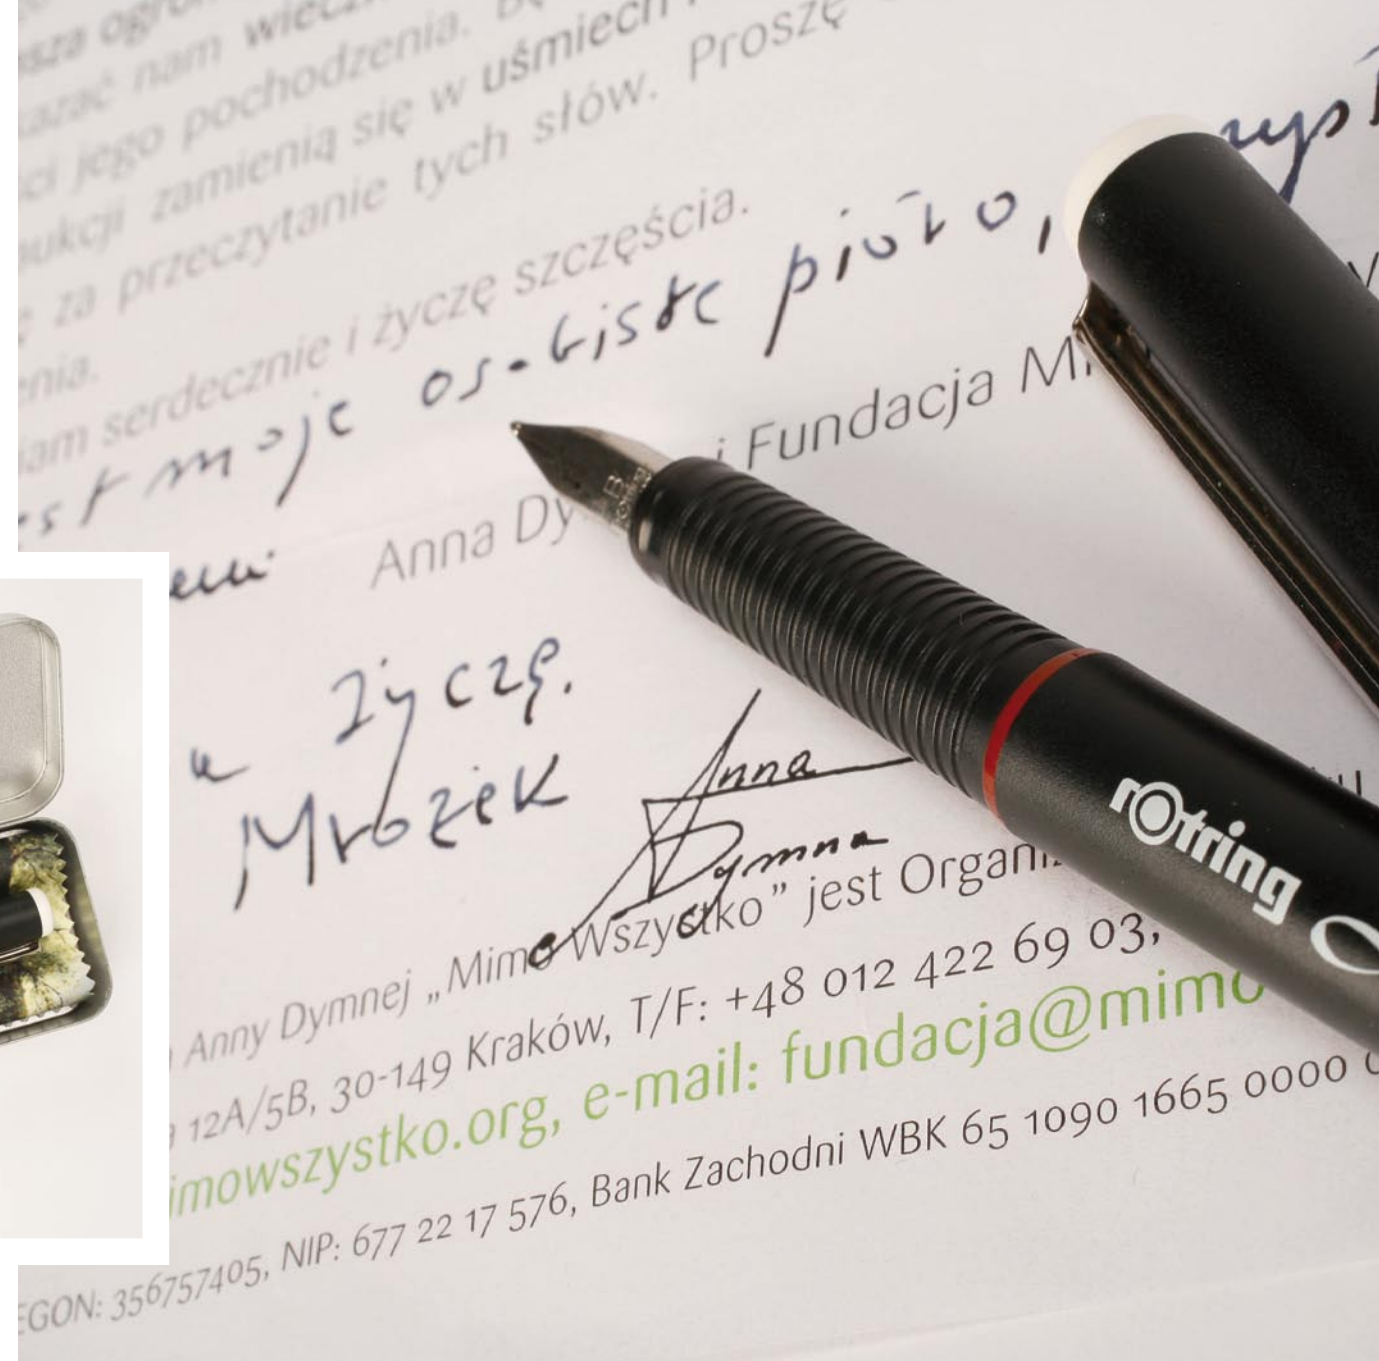 nam wiecz
jego pochodzenia.
zamienią się w uśmiech
za przeczytanie tych słów. Proszę
serdecznie i życzę szczęścia.
moje osobiste pióro,
i Fundacja Mi
Anna Dy
życzę.
Mrożek
Anna
Dymna
Anny Dymnej „Mimo Wszystko” jest Organiz
12A/5B, 30-149 Kraków, T/F: +48 012 422 69 03,
imowszystko.org, e-mail: fundacja@mimo
EGON: 356757405, NIP: 677 22 17 576, Bank Zachodni WBK 65 1090 1665 0000 0
B
rotring